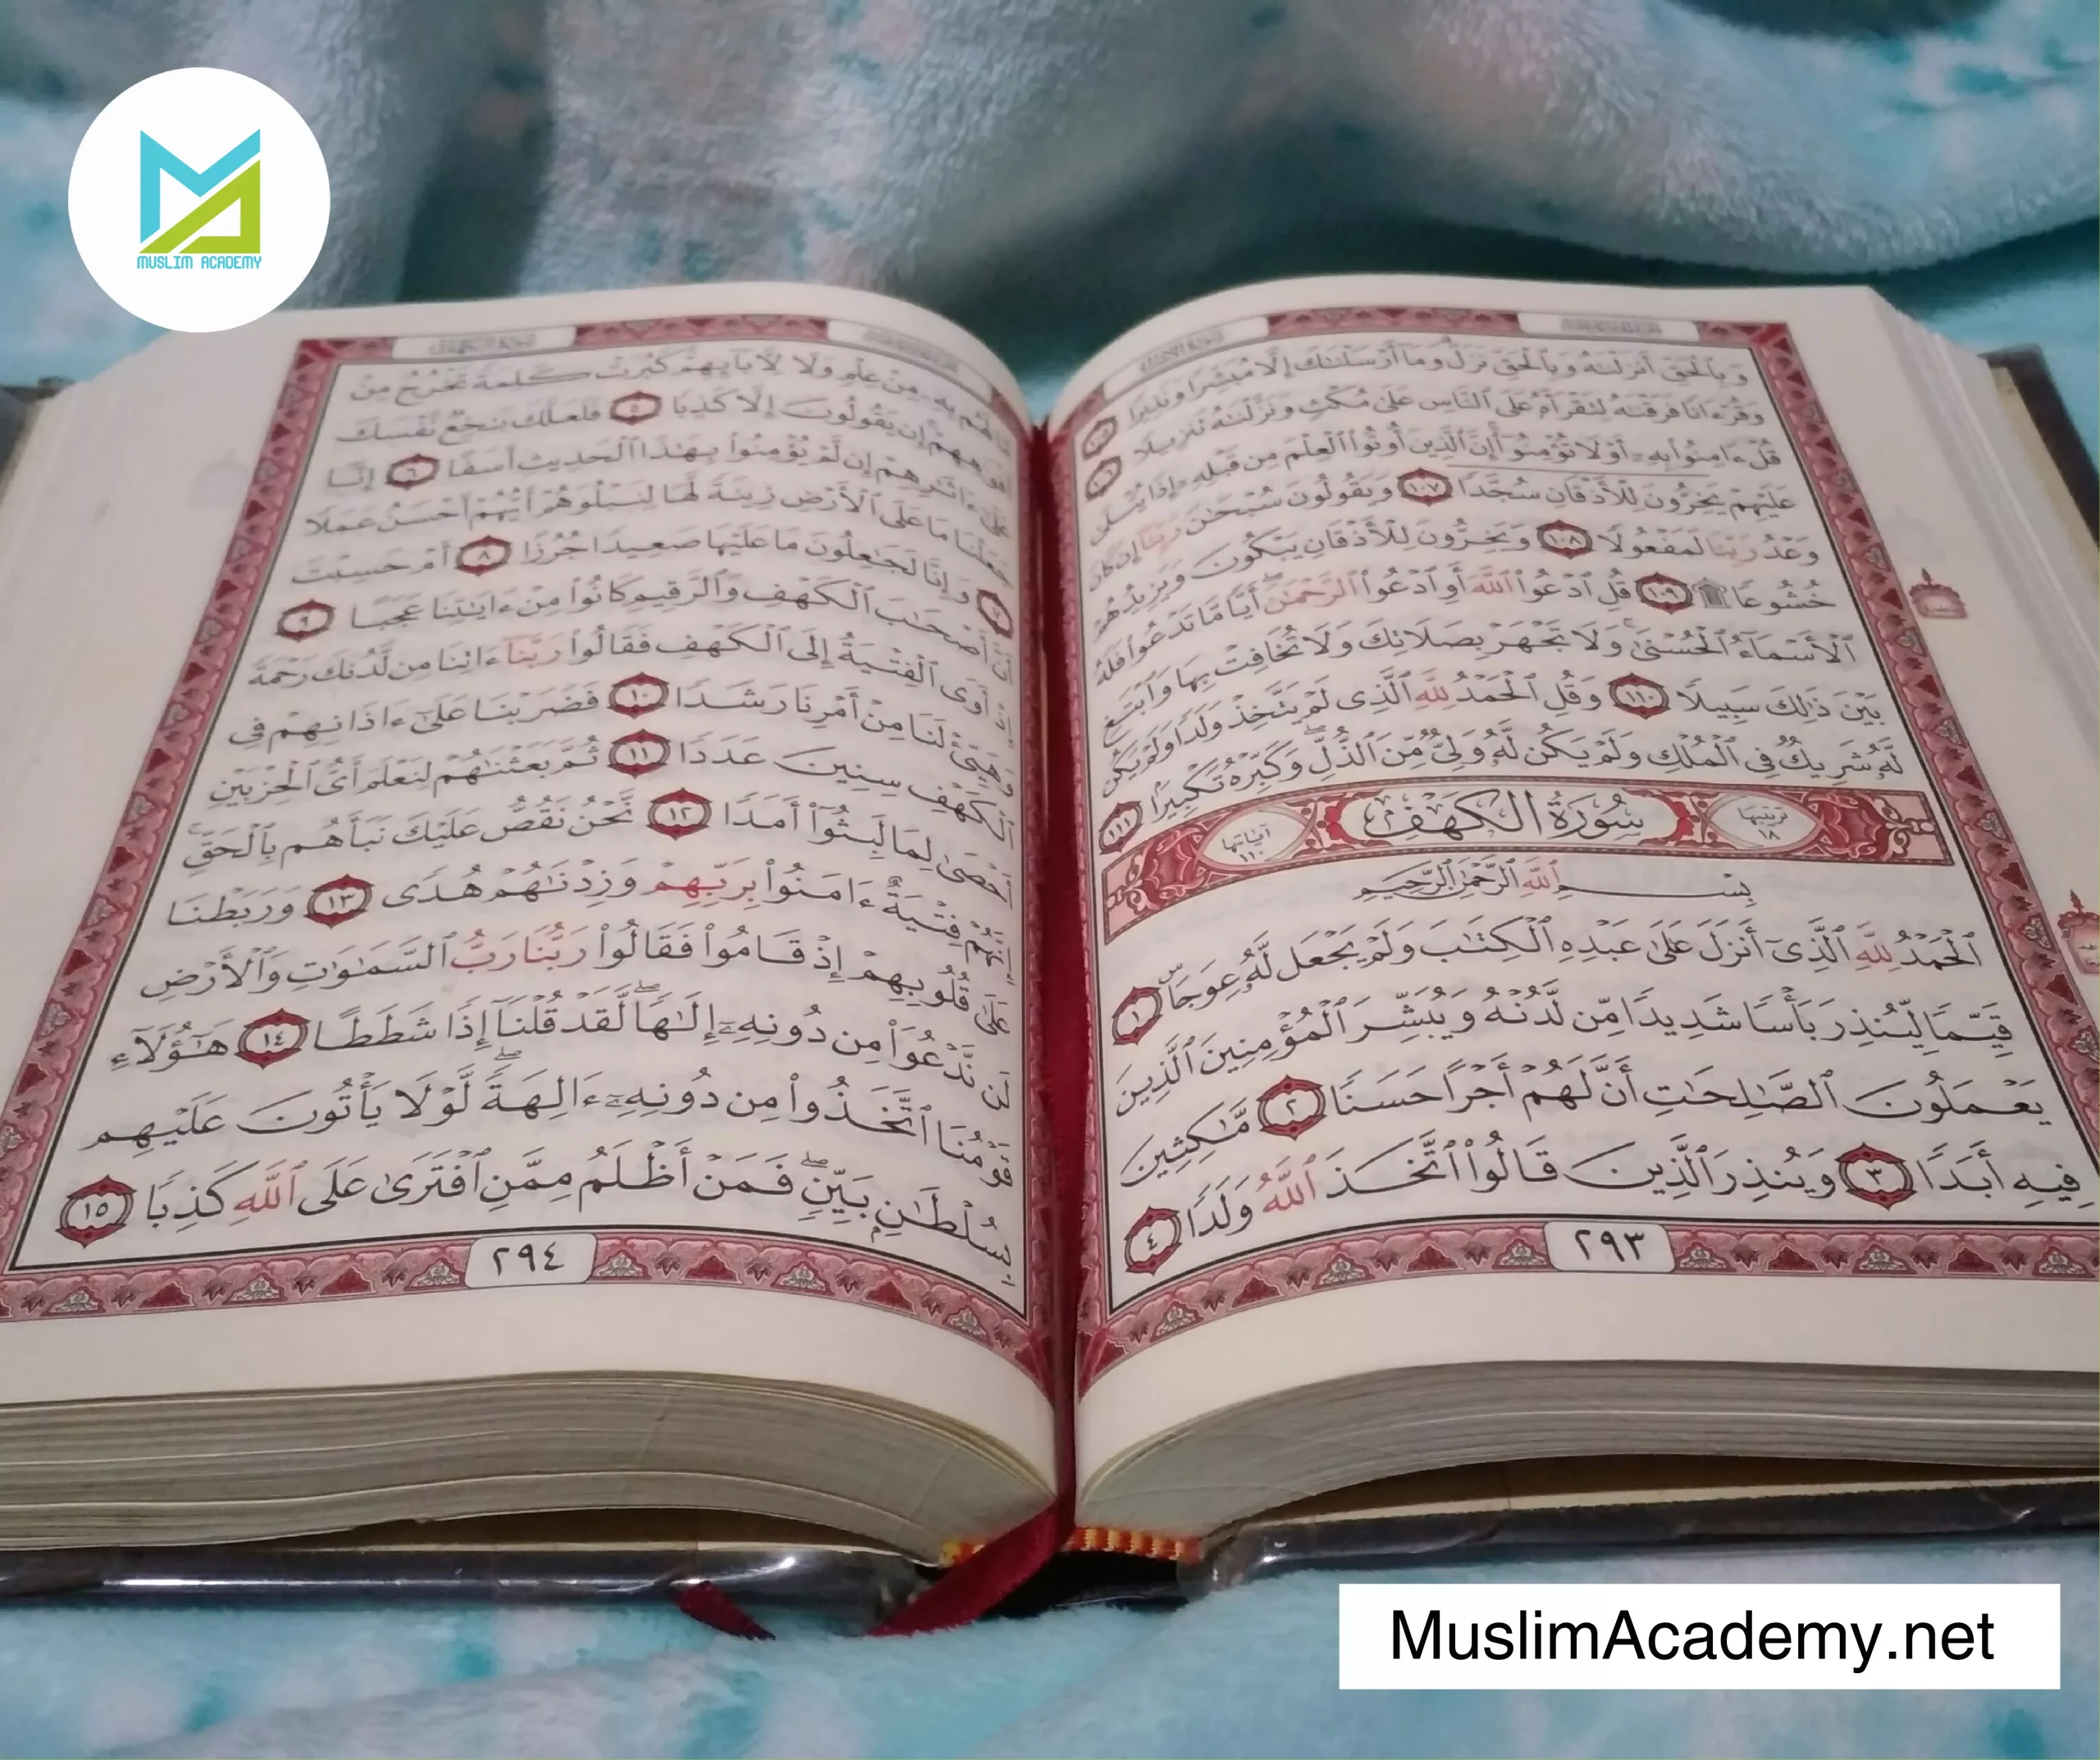 MUSLIM ACADEMY
وَبِٱلْحَقِّ أَنزَلْنَٰهُ وَبِٱلْحَقِّ نَزَلَ وَمَآ أَرْسَلْنَٰكَ إِلَّا مُبَشِّرًا وَنَذِيرًا ١٠٥
وَقُرْءَانًا فَرَقْنَٰهُ لِتَقْرَأَهُۥ عَلَى ٱلنَّاسِ عَلَىٰ مُكْثٍ وَنَزَّلْنَٰهُ تَنزِيلًا ١٠٦
قُلْ ءَامِنُوا۟ بِهِۦٓ أَوْ لَا تُؤْمِنُوٓا۟ إِنَّ ٱلَّذِينَ أُوتُوا۟ ٱلْعِلْمَ مِن قَبْلِهِۦٓ إِذَا يُتْلَىٰ
عَلَيْهِمْ يَخِرُّونَ لِلْأَذْقَانِ سُجَّدًا ١٠٧ وَيَقُولُونَ سُبْحَٰنَ رَبِّنَآ إِن كَانَ
وَعْدُ رَبِّنَا لَمَفْعُولًا ١٠٨ وَيَخِرُّونَ لِلْأَذْقَانِ يَبْكُونَ وَيَزِيدُهُمْ
خُشُوعًا ۩ ١٠٩ قُلِ ٱدْعُوا۟ ٱللَّهَ أَوِ ٱدْعُوا۟ ٱلرَّحْمَٰنَ ۖ أَيًّا مَّا تَدْعُوا۟ فَلَهُ
ٱلْأَسْمَآءُ ٱلْحُسْنَىٰ ۚ وَلَا تَجْهَرْ بِصَلَاتِكَ وَلَا تُخَافِتْ بِهَا وَٱبْتَغِ
بَيْنَ ذَٰلِكَ سَبِيلًا ١١٠ وَقُلِ ٱلْحَمْدُ لِلَّهِ ٱلَّذِى لَمْ يَتَّخِذْ وَلَدًا وَلَمْ يَكُن
لَّهُۥ شَرِيكٌ فِى ٱلْمُلْكِ وَلَمْ يَكُن لَّهُۥ وَلِىٌّ مِّنَ ٱلذُّلِّ ۖ وَكَبِّرْهُ تَكْبِيرًا ١١١
ترتيبها ١٨ سُورَةُ الكَهْفِ آياتها ١١٠
بِسْمِ ٱللَّهِ ٱلرَّحْمَٰنِ ٱلرَّحِيمِ
ٱلْحَمْدُ لِلَّهِ ٱلَّذِىٓ أَنزَلَ عَلَىٰ عَبْدِهِ ٱلْكِتَٰبَ وَلَمْ يَجْعَل لَّهُۥ عِوَجَا ۜ ١
قَيِّمًا لِّيُنذِرَ بَأْسًا شَدِيدًا مِّن لَّدُنْهُ وَيُبَشِّرَ ٱلْمُؤْمِنِينَ ٱلَّذِينَ
يَعْمَلُونَ ٱلصَّٰلِحَٰتِ أَنَّ لَهُمْ أَجْرًا حَسَنًا ٢ مَّٰكِثِينَ
فِيهِ أَبَدًا ٣ وَيُنذِرَ ٱلَّذِينَ قَالُوا۟ ٱتَّخَذَ ٱللَّهُ وَلَدًا ٤
٢٩٣
مَّا لَهُم بِهِۦ مِنْ عِلْمٍ وَلَا لِءَابَآئِهِمْ ۚ كَبُرَتْ كَلِمَةً تَخْرُجُ مِنْ
أَفْوَٰهِهِمْ ۚ إِن يَقُولُونَ إِلَّا كَذِبًا ٥ فَلَعَلَّكَ بَٰخِعٌ نَّفْسَكَ
عَلَىٰٓ ءَاثَٰرِهِمْ إِن لَّمْ يُؤْمِنُوا۟ بِهَٰذَا ٱلْحَدِيثِ أَسَفًا ٦ إِنَّا
جَعَلْنَا مَا عَلَى ٱلْأَرْضِ زِينَةً لَّهَا لِنَبْلُوَهُمْ أَيُّهُمْ أَحْسَنُ عَمَلًا
٧ وَإِنَّا لَجَٰعِلُونَ مَا عَلَيْهَا صَعِيدًا جُرُزًا ٨ أَمْ حَسِبْتَ
أَنَّ أَصْحَٰبَ ٱلْكَهْفِ وَٱلرَّقِيمِ كَانُوا۟ مِنْ ءَايَٰتِنَا عَجَبًا ٩
إِذْ أَوَى ٱلْفِتْيَةُ إِلَى ٱلْكَهْفِ فَقَالُوا۟ رَبَّنَآ ءَاتِنَا مِن لَّدُنكَ رَحْمَةً
وَهَيِّئْ لَنَا مِنْ أَمْرِنَا رَشَدًا ١٠ فَضَرَبْنَا عَلَىٰٓ ءَاذَانِهِمْ فِى
ٱلْكَهْفِ سِنِينَ عَدَدًا ١١ ثُمَّ بَعَثْنَٰهُمْ لِنَعْلَمَ أَىُّ ٱلْحِزْبَيْنِ
أَحْصَىٰ لِمَا لَبِثُوٓا۟ أَمَدًا ١٢ نَّحْنُ نَقُصُّ عَلَيْكَ نَبَأَهُم بِٱلْحَقِّ ۚ
إِنَّهُمْ فِتْيَةٌ ءَامَنُوا۟ بِرَبِّهِمْ وَزِدْنَٰهُمْ هُدًى ١٣ وَرَبَطْنَا
عَلَىٰ قُلُوبِهِمْ إِذْ قَامُوا۟ فَقَالُوا۟ رَبُّنَا رَبُّ ٱلسَّمَٰوَٰتِ وَٱلْأَرْضِ
لَن نَّدْعُوَا۟ مِن دُونِهِۦٓ إِلَٰهًا ۖ لَّقَدْ قُلْنَآ إِذًا شَطَطًا ١٤ هَٰٓؤُلَآءِ
قَوْمُنَا ٱتَّخَذُوا۟ مِن دُونِهِۦٓ ءَالِهَةً ۖ لَّوْلَا يَأْتُونَ عَلَيْهِم
بِسُلْطَٰنٍۭ بَيِّنٍ ۖ فَمَنْ أَظْلَمُ مِمَّنِ ٱفْتَرَىٰ عَلَى ٱللَّهِ كَذِبًا ١٥
٢٩٤
MuslimAcademy.net